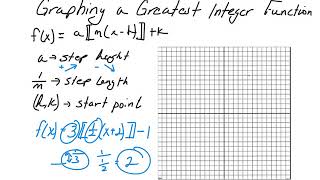 Graphing a Greatest Integer Function
f(x) = a[[m(x-h)]]+k
a → step height
+ ↗ - ↘
1/m → step length
(h,k) → start point
f(x) = 3[[½(x+2)]]-1
3 1/½ = 2